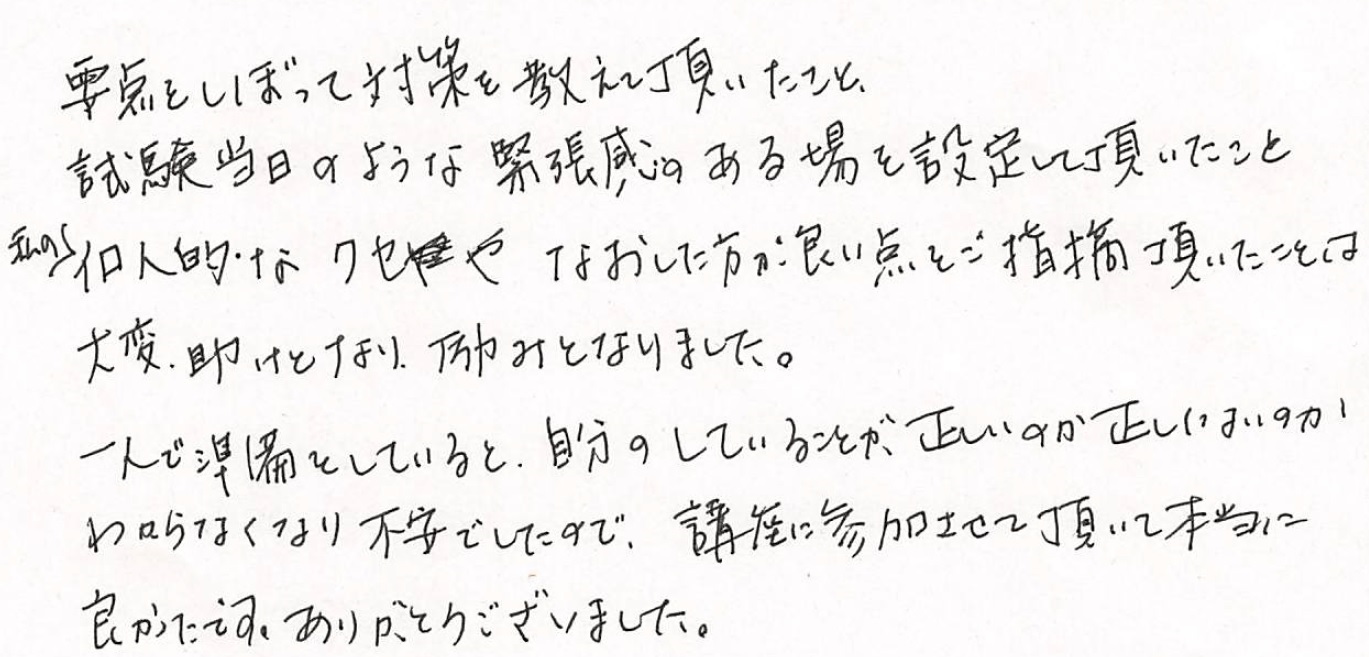 要点をしぼって対策を教えて頂いたこと、
試験当日のような緊張感のある場を設定して頂いたこと
私の個人的なクセや なおした方が良い点をご指摘頂いたことは
大変、助けとなり、励みとなりました。
一人で準備をしていると、自分のしていることが、正しいのか正しくないのか
わからなくなり不安でしたので、講座に参加させて頂いて本当に
良かったです。ありがとうございました。